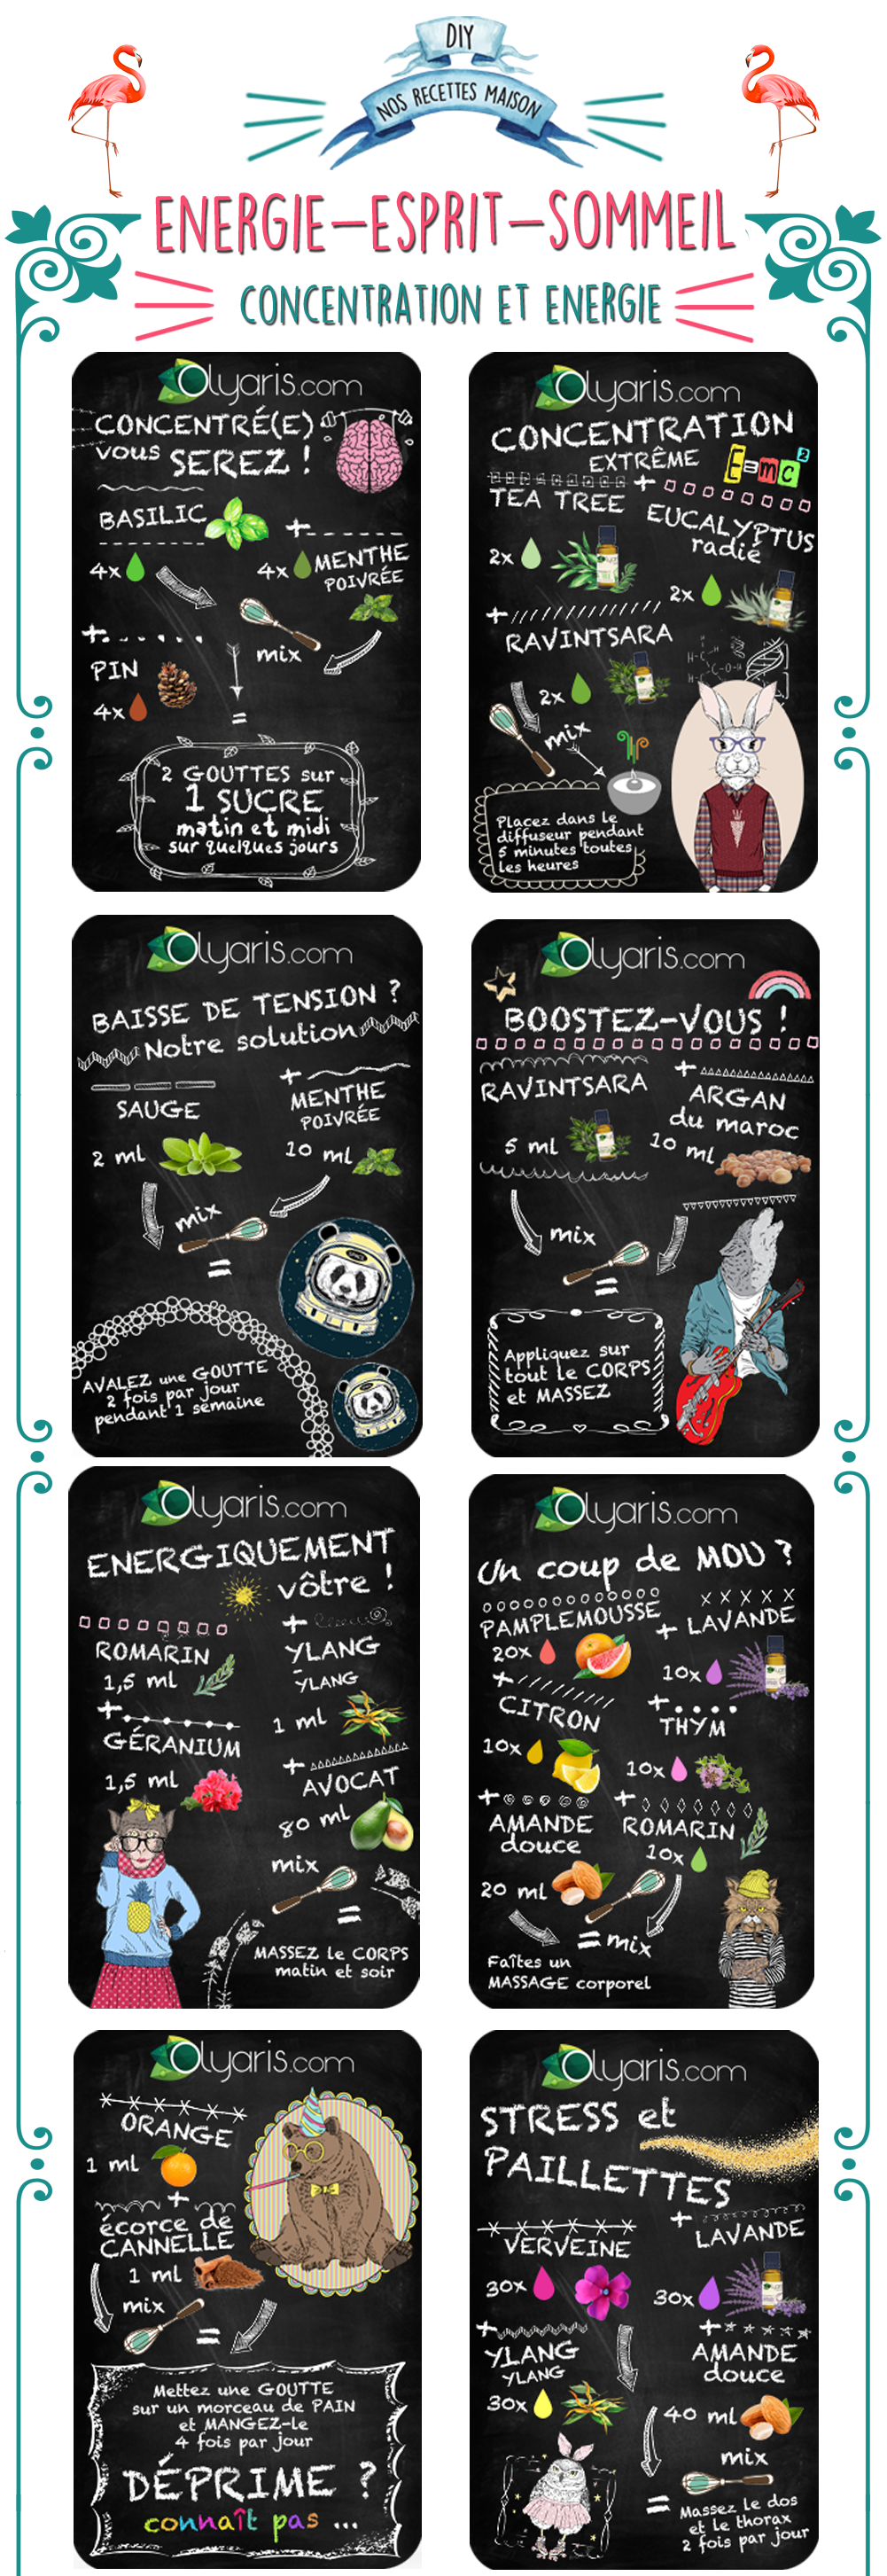 DIY
NOS RECETTES MAISON
ENERGIE-ESPRIT-SOMMEIL
CONCENTRATION ET ENERGIE
Olyaris.com
CONCENTRÉ(E)
vous SEREZ !
BASILIC
4x
+
MENTHE
POIVRÉE
4x
+
PIN
4x
mix
=
2 GOUTTES sur
1 SUCRE
matin et midi
sur quelques jours
Olyaris.com
CONCENTRATION
EXTRÊME
E=mc2
TEA TREE
2x
+
EUCALYPTUS
radié
2x
+
RAVINTSARA
2x
mix
Placez dans le
diffuseur pendant
5 minutes toutes
les heures
Olyaris.com
BAISSE DE TENSION ?
Notre solution
SAUGE
2 ml
+
MENTHE
POIVRÉE
10 ml
mix
=
AVALEZ une GOUTTE
2 fois par jour
pendant 1 semaine
Olyaris.com
BOOSTEZ-VOUS !
RAVINTSARA
5 ml
+
ARGAN
du maroc
10 ml
mix
=
Appliquez sur
tout le CORPS
et MASSEZ
Olyaris.com
ENERGIQUEMENT
vôtre !
ROMARIN
1,5 ml
+
YLANG
YLANG
1 ml
+
GÉRANIUM
1,5 ml
+
AVOCAT
80 ml
mix
=
MASSEZ le CORPS
matin et soir
Olyaris.com
Un coup de MOU ?
PAMPLEMOUSSE
20x
+ LAVANDE
10x
+
CITRON
10x
+
THYM
10x
+
AMANDE
douce
20 ml
+
ROMARIN
10x
= mix
Faîtes un
MASSAGE corporel
Olyaris.com
ORANGE
1 ml
+
écorce de
CANNELLE
1 ml
mix
=
Mettez une GOUTTE
sur un morceau de PAIN
et MANGEZ-le
4 fois par jour
DÉPRIME ?
connaît pas ...
Olyaris.com
STRESS et
PAILLETTES
VERVEINE
30x
+
LAVANDE
30x
+
YLANG
YLANG
30x
+
AMANDE
douce
40 ml
mix
=
Massez le dos
et le thorax
2 fois par jour